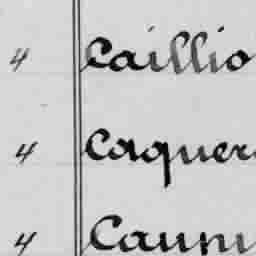 4 Caillio
4 Coquer
4 Caunu